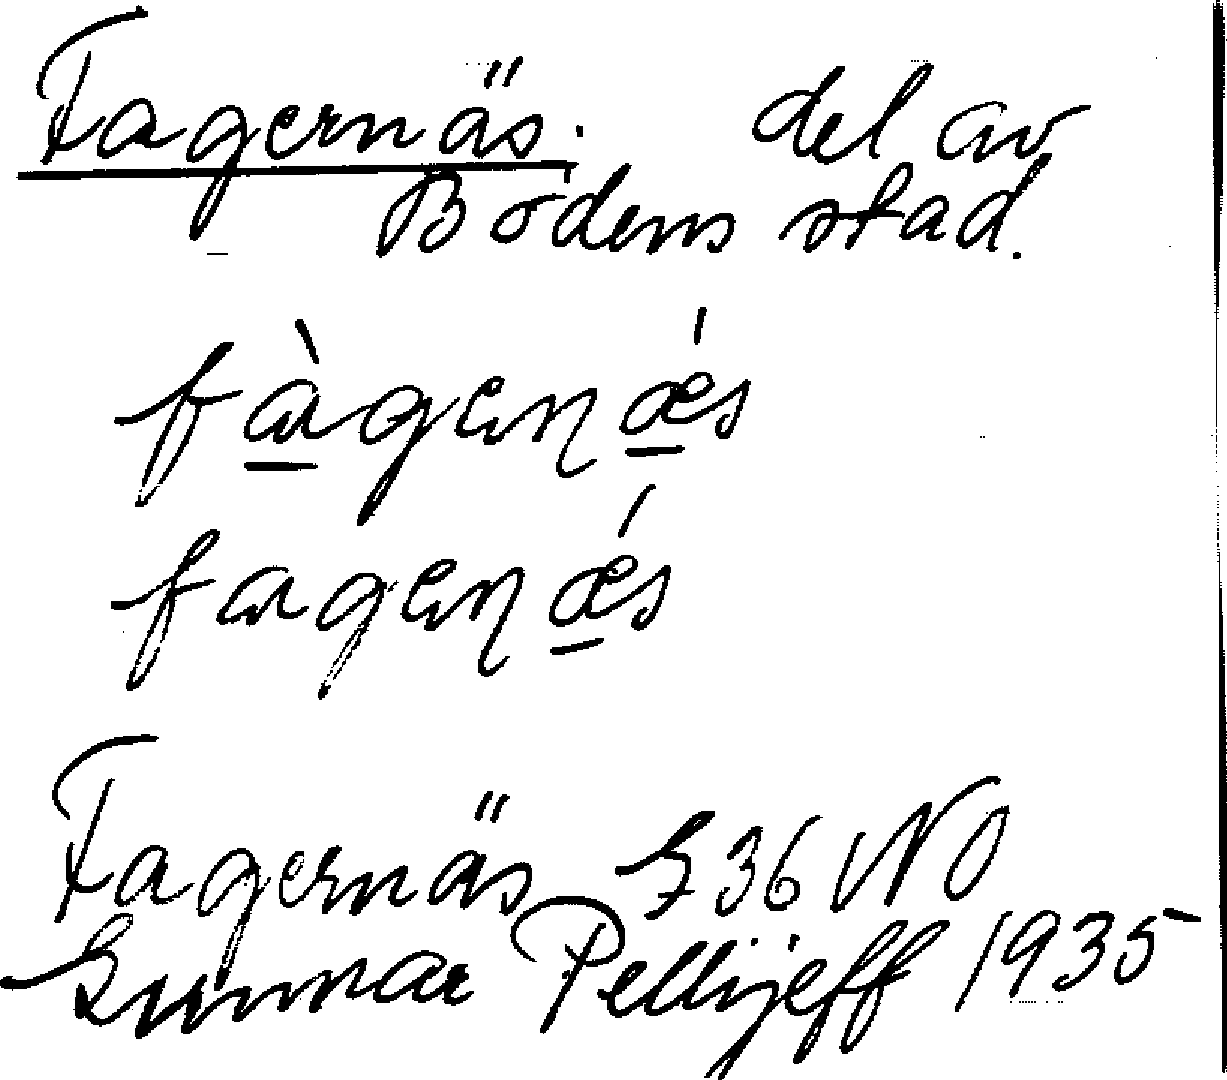 Fagernäs. del av
Bodens stad.
fàgeɳǽs
fageɳǽs
Fagernäs G 36 NO
Gunnar Pellijeff 1935